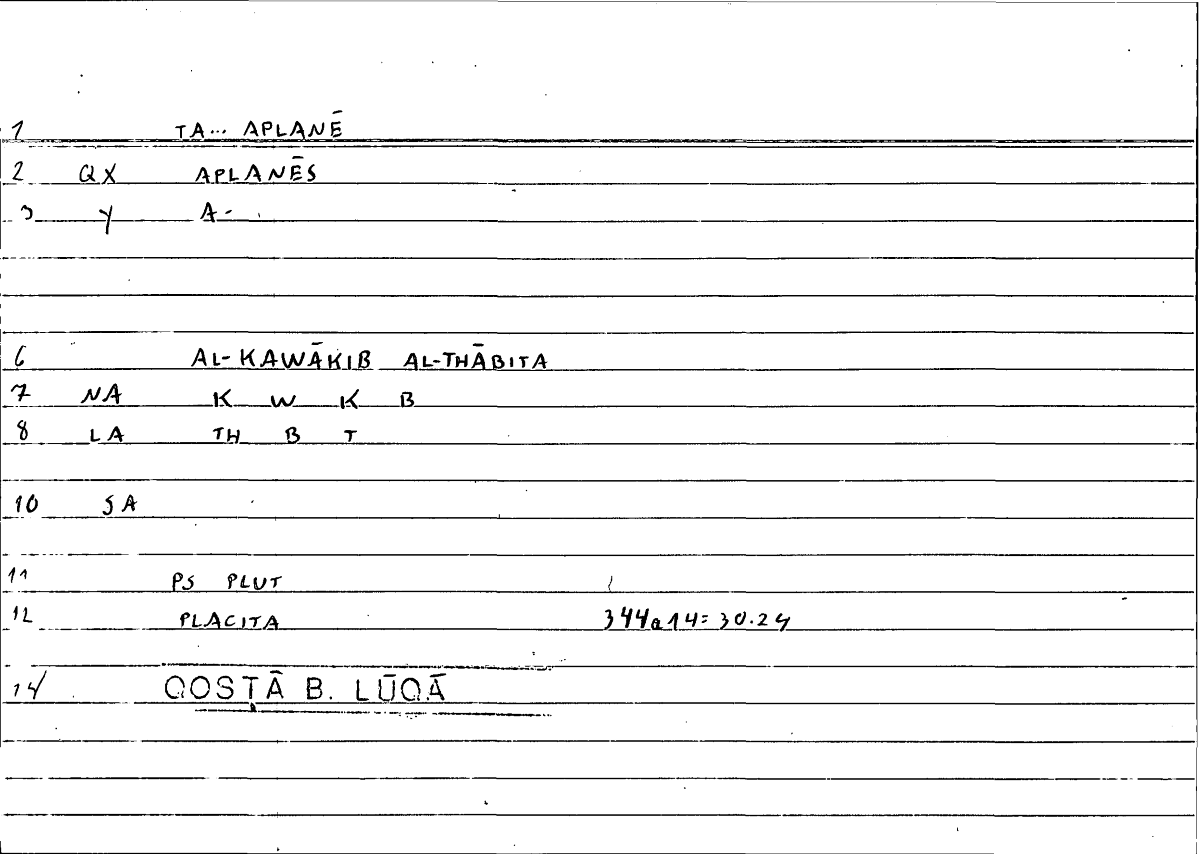 1 TA... APLANĒ
2 QX APLANĒS
3 Y A-
6 AL-KAWĀKIB AL-THĀBITA
7 NA K W K B
8 LA TH B T
10 SA
11 PS PLUT
12 PLACITA 344a14=30.24
14 QOSṬĀ B. LŪQĀ